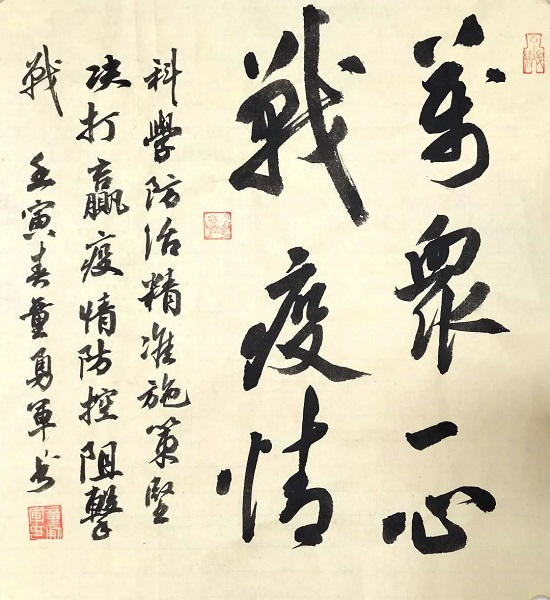 萬眾一心
戰疫情
科學防治精准施策堅
决打贏疫情防控阻擊
戰 壬寅春董勇軍书